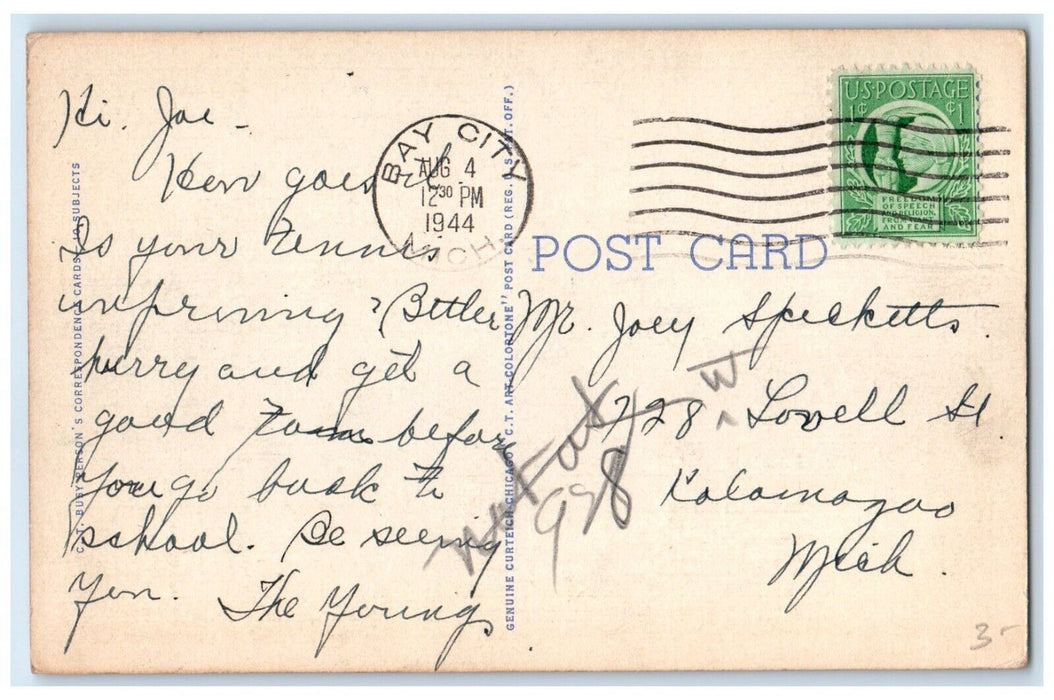 Hi. Joe -
How goes it.
Is your tennis
improving? Better
hurry and get a
good before
you go back to
school. Be seeing
you. The Youngs
C.T. BUSY PERSON'S CORRESPONDENCE CARDS, 10 SUBJECTS
BAY CITY
AUG 4
12 30 PM
1944
MICH.
GENUINE CURTEICH-CHICAGO "C.T. ART-COLORTONE" POST CARD (REG. U.S. PAT. OFF.)
U.S. POSTAGE
1¢ ¢1
FREEDOM
OF SPEECH
AND RELIGION,
FROM WANT
AND FEAR
POST CARD
Mr. Joey Specketts
W
728 Lovell St
Kalamazoo
Mich.
Not at
928
3-